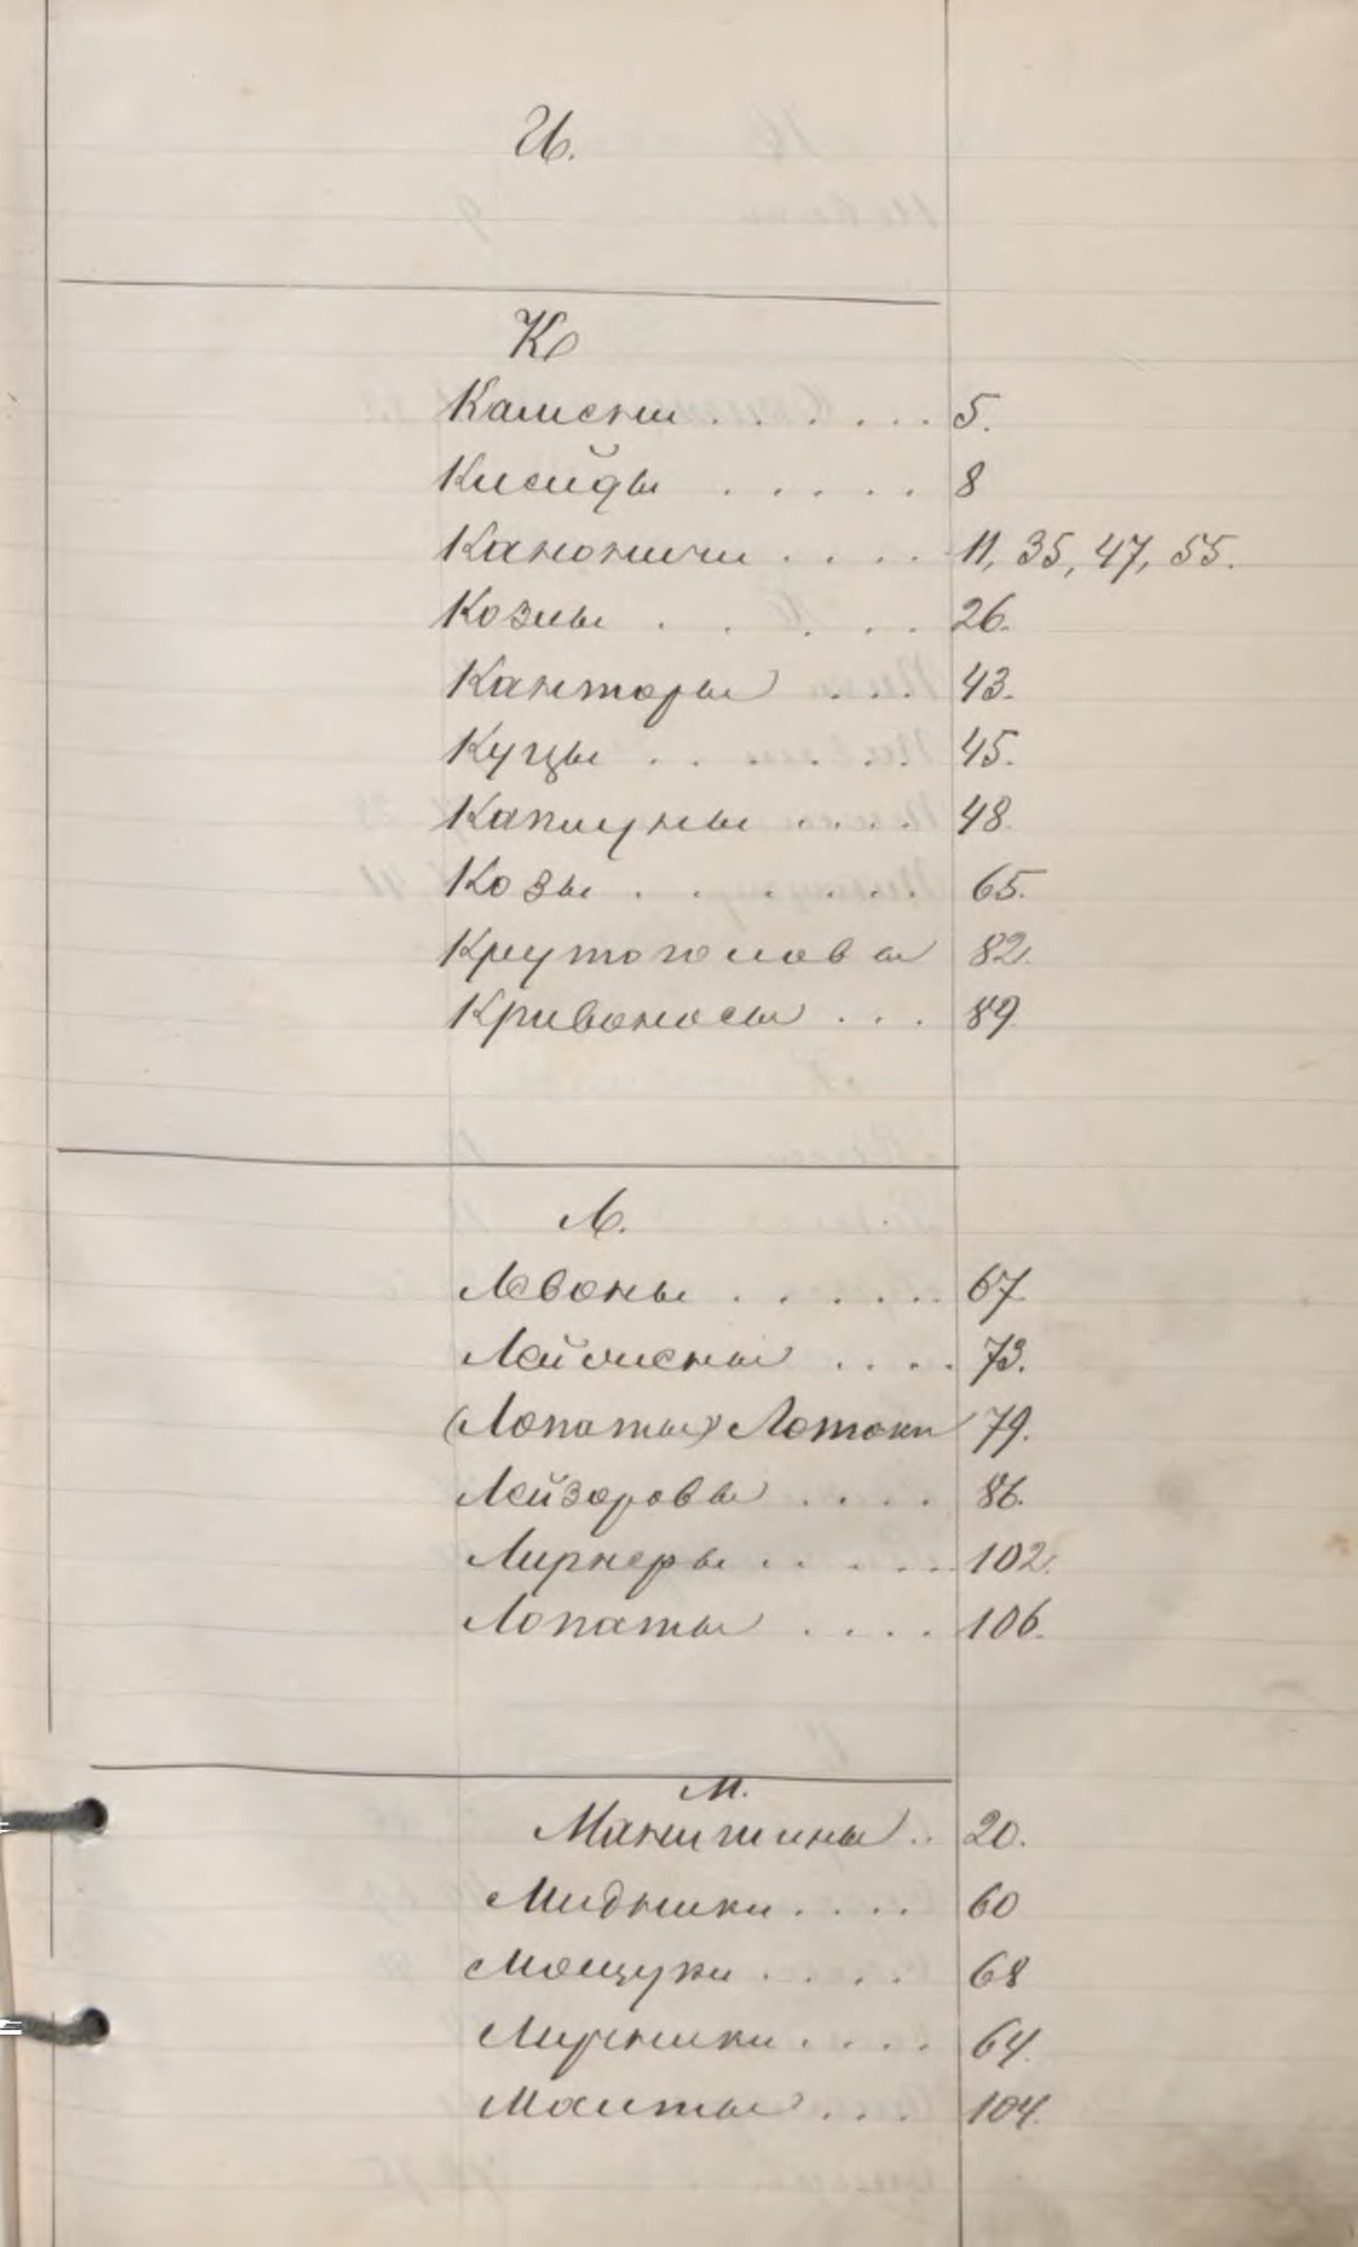 И.
К
Камени . . . . . . 5.
Кисиды . . . . . 8
Канонич̆и . . . . 11, 35, 47, 55.
Козлы . . . . . 26.
Канторы . . . 43.
Куцы . . . . . 45.
Каплуны . . . . 48.
Козы . . . . . . 65.
Крутоголовы 82.
Кривоносы . . . 89.
Л.
Левоны . . . . . . 67.
73.
(Лопаты) Лотоки 79.
Лейзоровы . . . . 86.
Лирнеры . . . . . 102.
Лопаты . . . . 106.
М.
20.
Мидники . . . . 60
Мощуки . . . . 68
64.
104.